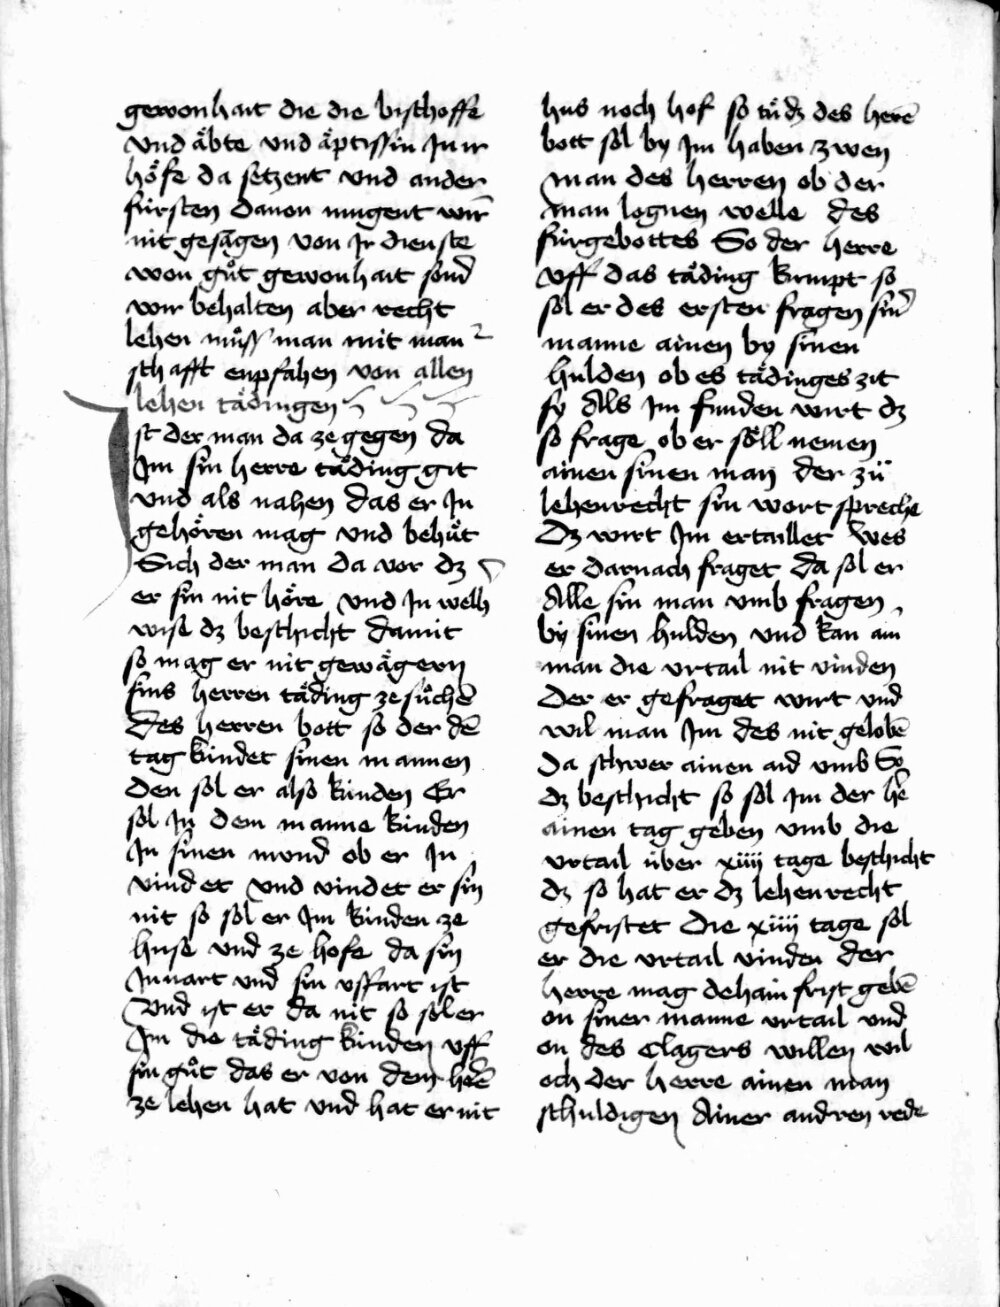 gewonhait die die bischoffe
vnd äbte vnd äptissin In ir
höfe da setzent vnd ander
fürsten dauon mugent wir
nit gesagen von Ir dienste
won gůt gewonhait sond
wir behalten aber recht
lehen můss man mit man
schafft enpfahen von allen
lehen tädingen
Ist der man da ze gegen da
Im sin herre täding git
vnd als nahen das er In
gehören mag vnd behůt
Sich der man da vor dz
er sin nit höre vnd In welh
wise dz beschicht damit
so mag er nit gewägern
sins herren täding ze sůchē
Des herren bott so der dē
tag kündet sinen mannen
Den sol er also künden Er
sol In dem manne künden
In sinen mund ob er In
vindet vnd vindet er sin
nit so sol er Im künden ze
huse vnd ze hofe da sin
Inuart vnd sin vffart ist
Vnd ist er da nit so sol er
Im die täding künden vff
sin gůt das er von dem herē
ze lehen hat vnd hat er nit
hus noch hof so tů dz des herē
bott sol by Im haben zwen
man des herren ob der
man lognen welle des
fürgebottes So der herre
vff das täding kumpt so
sol er des ersten fragen sinꝰ
manne ainen by sinen
hulden ob es tädinges zit
sy Als Im funden wirt dz
so frage ob er söll nemen
ainen sinen man der zů
lehenrecht sin wort spreche
Dz wirt Im ertaillet Wes
er darnach fraget da sol er
Alle sin man vmb fragen
by sinen hulden vnd kan ain
man die vrtail nit vinden
Der er gefraget wirt vnd
wil man Im des nit gelobē
Da schwer ainen aid vmb So
dz beschicht so sol Im der h̄e
ainen tag geben vmb die
vrtail über xiiij tage beschicht
dz so hat er dz lehenrecht
gefristet Die xiiij tage sol
er die vrtail vinden der
herre mag dehain frist gebē
on siner manne vrtail vnd
on des clagers willen wil
och der herre ainen man
schuldigen Ainer andren rede